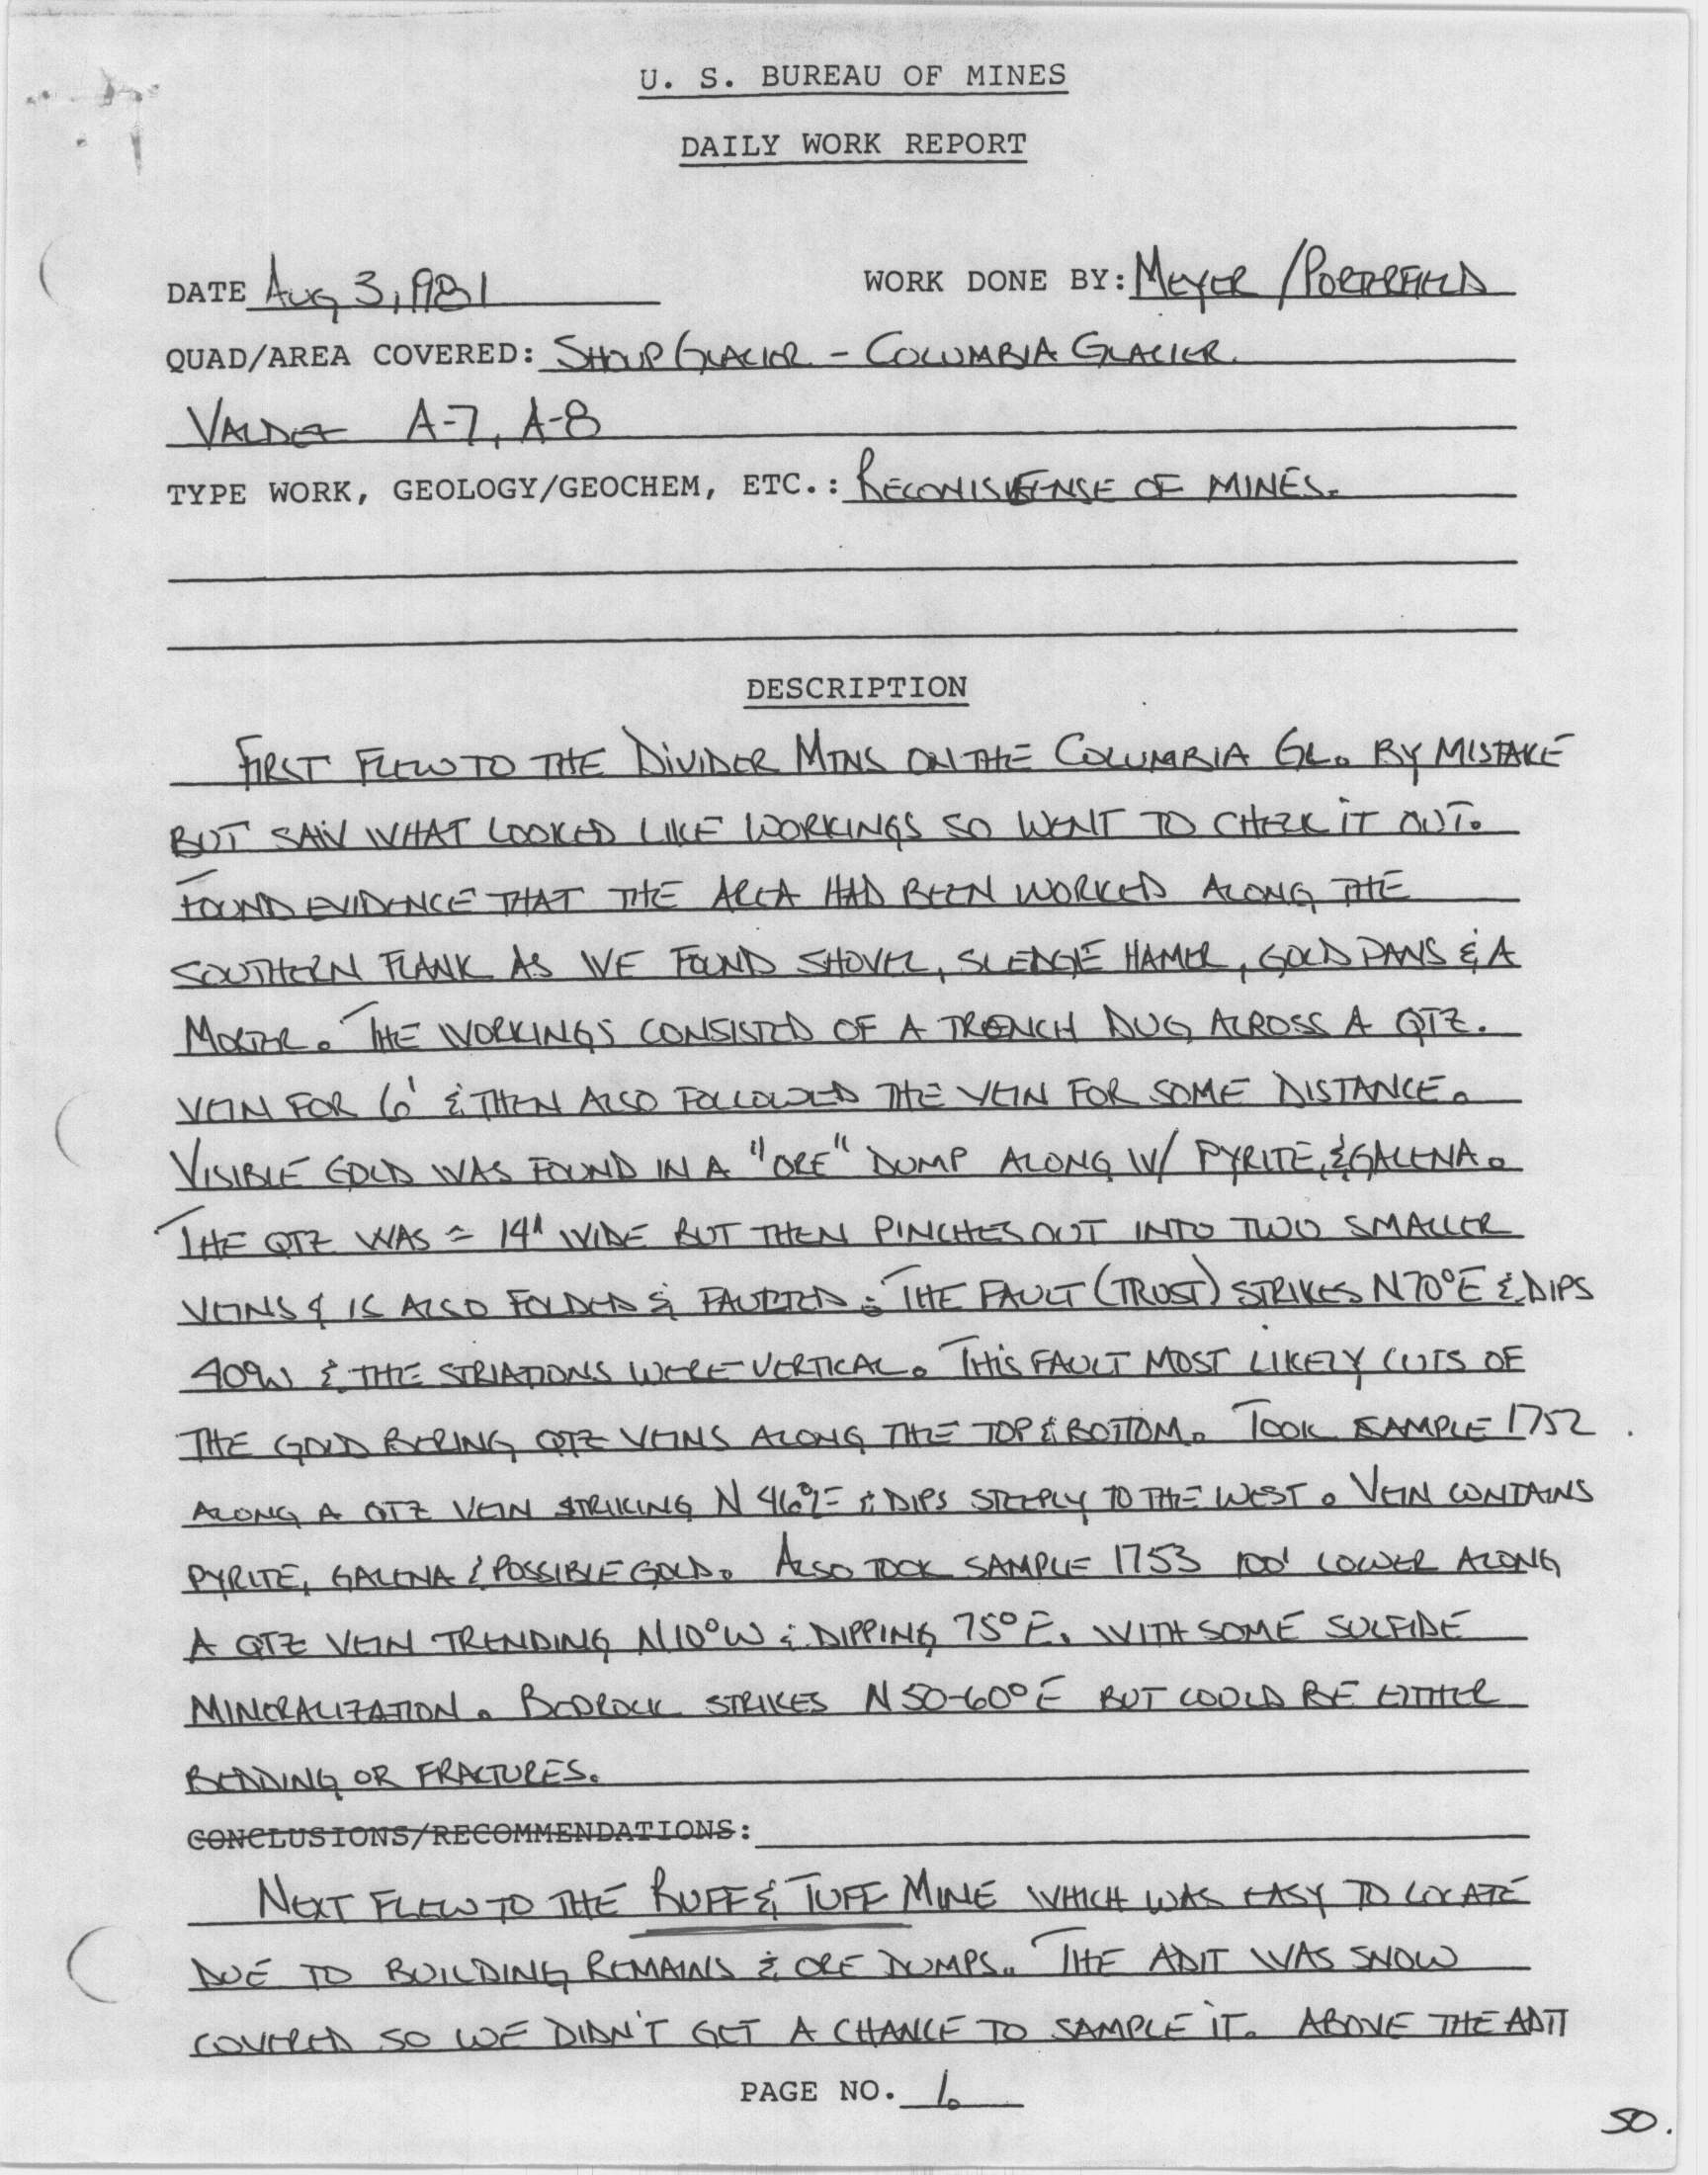 U. S. BUREAU OF MINES
DAILY WORK REPORT
DATE AUG 3, 1981 WORK DONE BY: MEYER / PORTERFIELD
QUAD/AREA COVERED: SHOUP GLACIER - COLUMBIA GLACIER.
VALDEZ A-7, A-8
TYPE WORK, GEOLOGY/GEOCHEM, ETC.: OF MINES.
DESCRIPTION
FIRST FLEW TO THE DIVIDER MTNS ON THE COLUMBIA GL. BY MISTAKE
BUT SAW WHAT LOOKED LIKE WORKINGS SO WENT TO CHECK IT OUT.
FOUND EVIDENCE THAT THE AREA HAD BEEN WORKED ALONG THE
SOUTHERN FLANK AS WE FOUND SHOVEL, SLEDGE HAMER, GOLD PANS & A
MORTER. THE WORKINGS CONSISTED OF A TRENCH DUG ACROSS A QTZ.
VEIN FOR 6' & THEN ALSO FOLLOWED THE VEIN FOR SOME DISTANCE.
VISIBLE GOLD WAS FOUND IN A "ORE" DUMP ALONG W/ PYRITE, & GALENA.
THE QTZ WAS ≈ 14" WIDE BUT THEN PINCHES OUT INTO TWO SMALLER
VEINS & IS ALSO FOLDED & FAULTED. THE FAULT (TRUST) STRIKES N70°E & DIPS
40°W & THE STRIATIONS WERE VERTICAL. THIS FAULT MOST LIKELY CUTS OF
THE GOLD BERING QTZ VEINS ALONG THE TOP & BOTTOM. TOOK SAMPLE 1752
ALONG A QTZ VEIN STRIKING N 46°E & DIPS STEEPLY TO THE WEST. VEIN CONTAINS
PYRITE, GALENA & POSSIBLE GOLD. ALSO TOOK SAMPLE 1753 100' LOWER ALONG
A QTZ VEIN TRENDING N10°W & DIPPING 75°E. WITH SOME SULFIDE
MINERALIZATION. BEDROCK STRIKES N 50-60°E BUT COULD BE EITHER
BEDDING OR FRACTURES.
CONCLUSIONS/RECOMMENDATIONS:
NEXT FLEW TO THE RUFF & TUFF MINE WHICH WAS EASY TO LOCATE
DUE TO BUILDING REMAINS & ORE DUMPS. THE ADIT WAS SNOW
COVERED SO WE DIDN'T GET A CHANCE TO SAMPLE IT. ABOVE THE ADIT
PAGE NO. 1.
50.